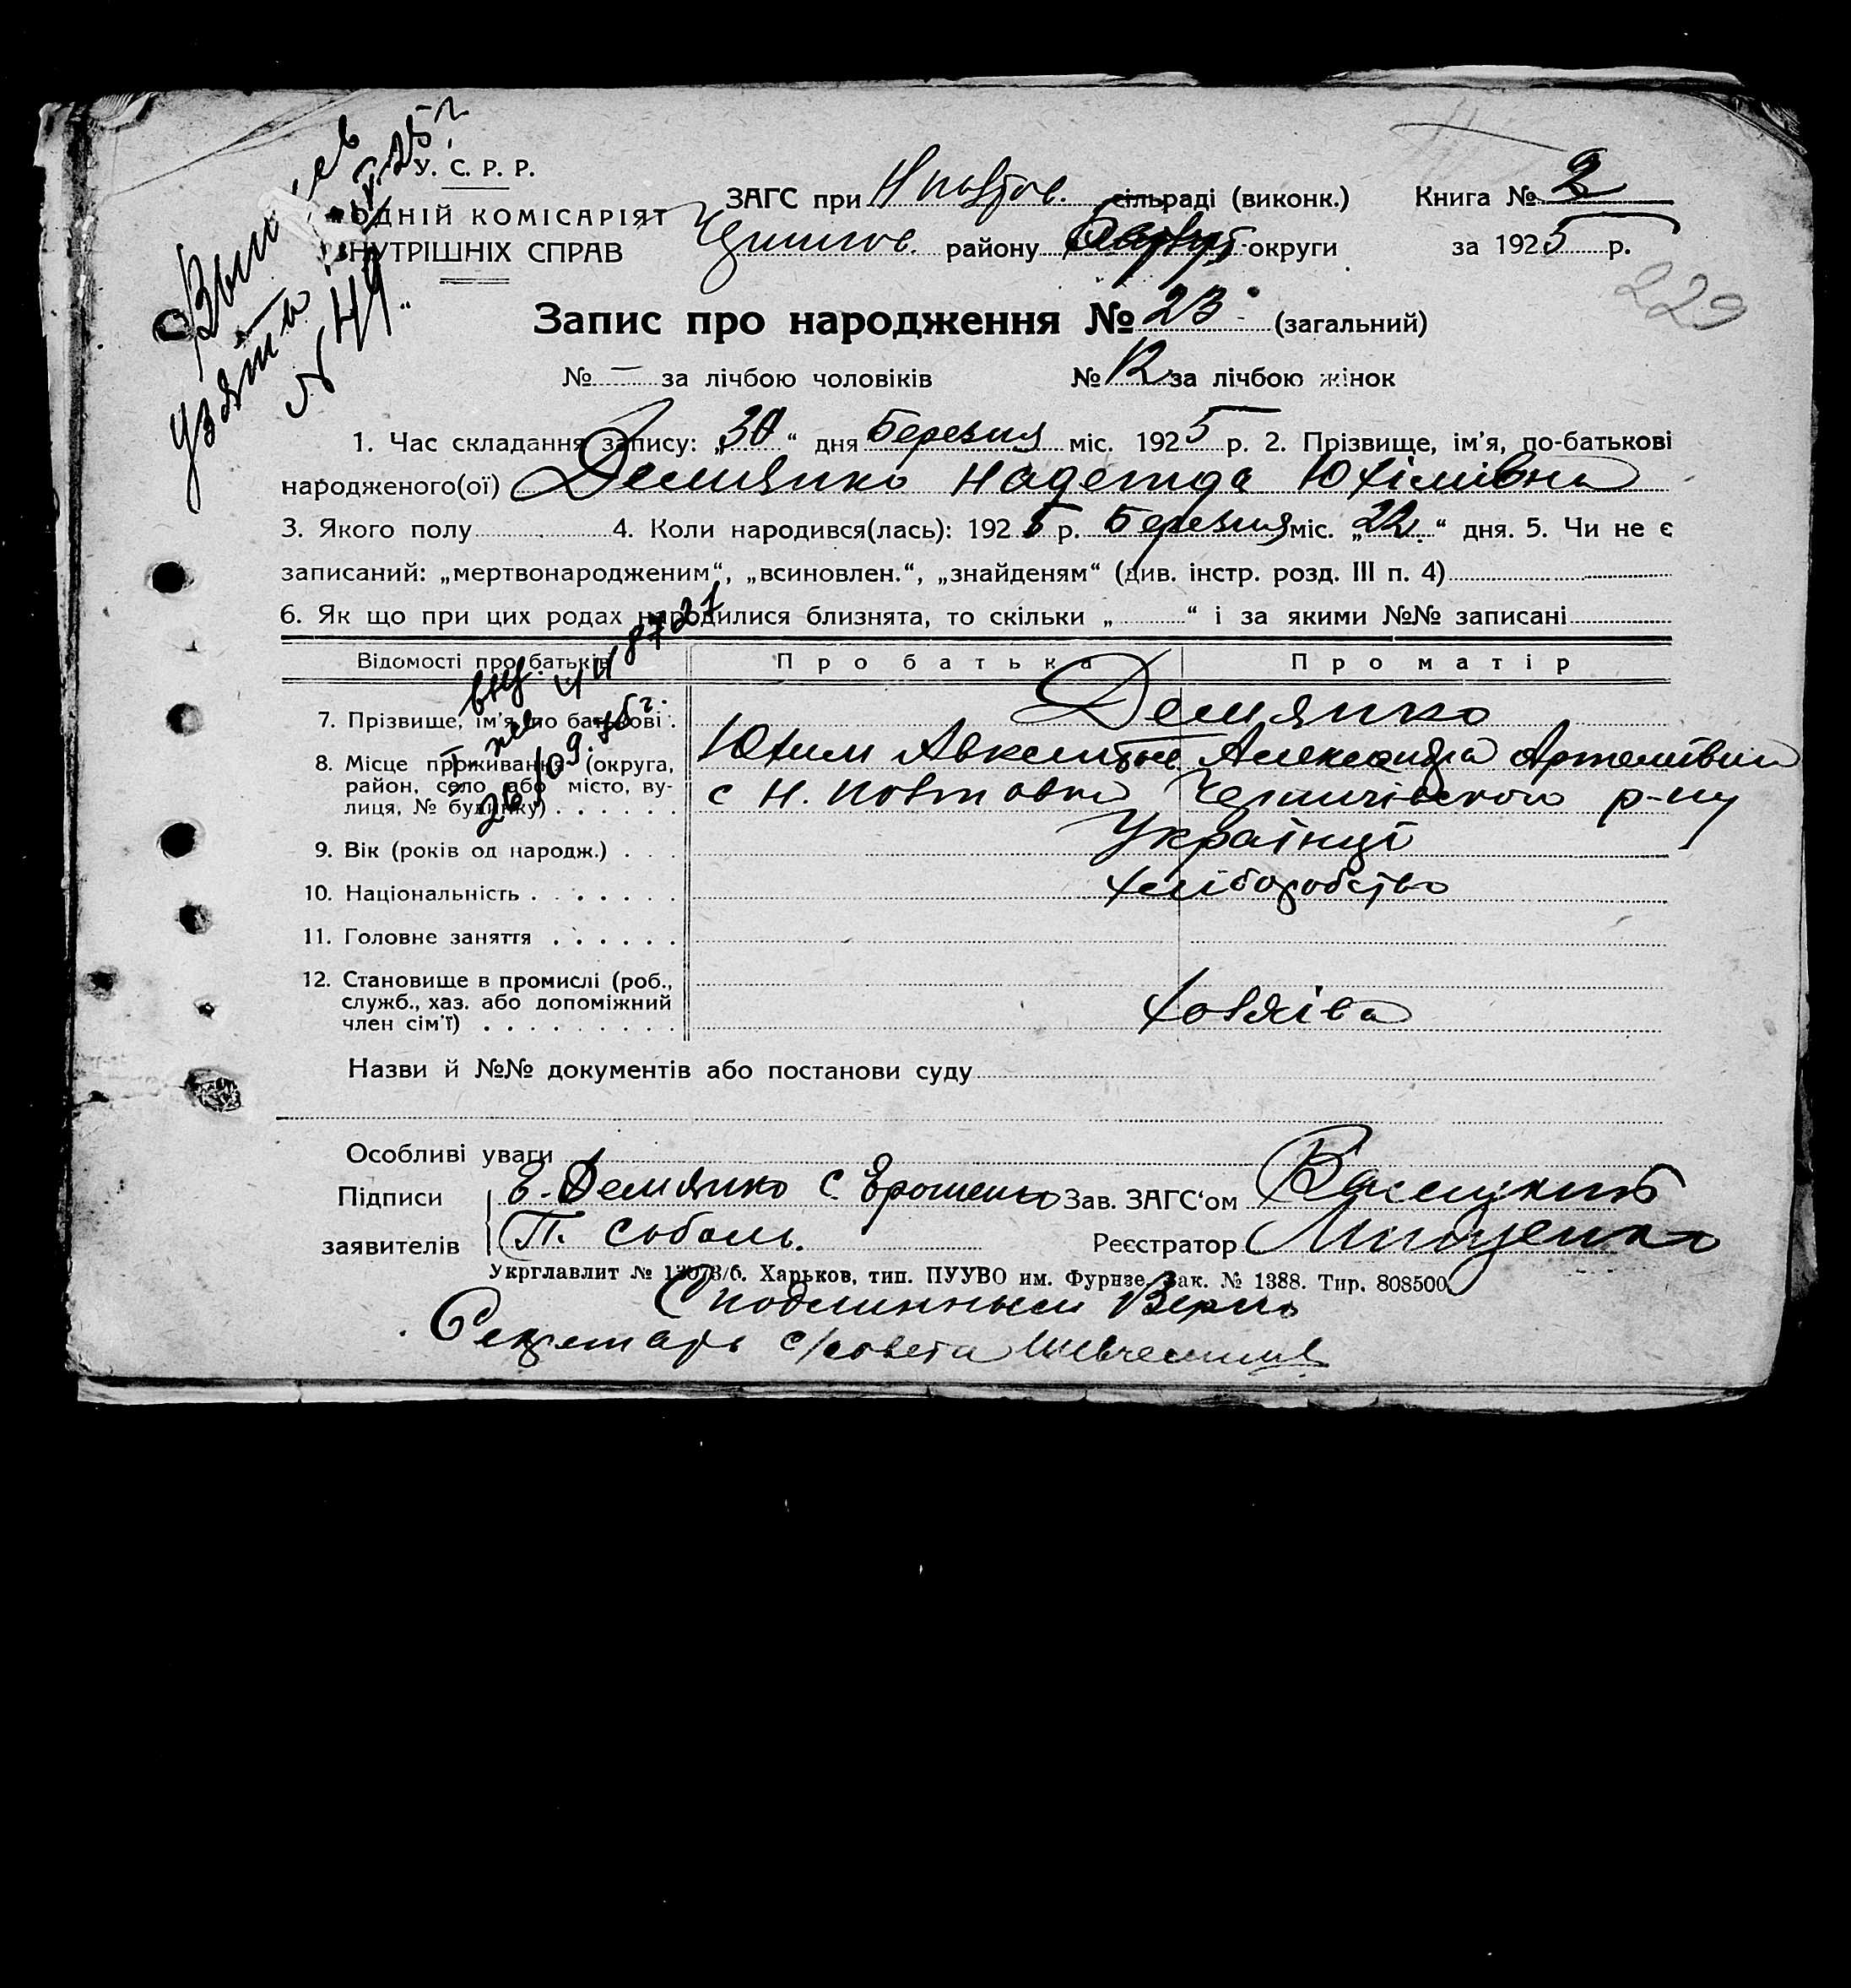 У. С. Р. Р.
ОДНІЙ КОМІСАРІЯТ
ВНУТРІШНІХ СПРАВ
узято
№ 49
ЗАГС при сільраді (виконк.) Книга № 2
району округи за 1925 р.
229
Запис про народження № 23 (загальний)
№ – за лічбою чоловіків № 12 за лічбою жінок
1. Час складання запису: „30“ дня Березня міс. 1925 р. 2. Прізвище, ім'я, по-батькові
народженого(ої) Демянко Надежда Юхімівна
3. Якого полу 4. Коли народився(лась): 1925 р. Березня міс. „22“ дня. 5. Чи не є
записаний: „мертвонародженим“, „всиновлен.“, „знайденям“ (див. інстр. розд. III п. 4)
6. Як що при цих родах народилися близнята, то скільки „ “ і за якими №№ записані
Відомості про батьків Про батька Про матір
7. Прізвище, ім'я, по батькові Демянко
8. Місце проживання (округа, Юхим Александра Артемівна
район, село або місто, ву- с Н. Повтовка р-ну
лиця, № будинку)
9. Вік (років од народж.) Українці
10. Національність хліборобство
11. Головне заняття
12. Становище в промислі (роб.,
служб., хаз. або допоміжний хозяіва
член сім'ї)
Назви й №№ документів або постанови суду
Особливі уваги
Підписи Е. Демянко С. Ерошенко Зав. ЗАГС'ом
заявителів П. Соболь. Реєстратор Мищенко
Укрглавлит № 13073/б. Харьков, тип. ПУУВО им. Фурнзе. Зак. № 1388. Тир. 808500.
С подлинным Верно
Секретарь с/совета